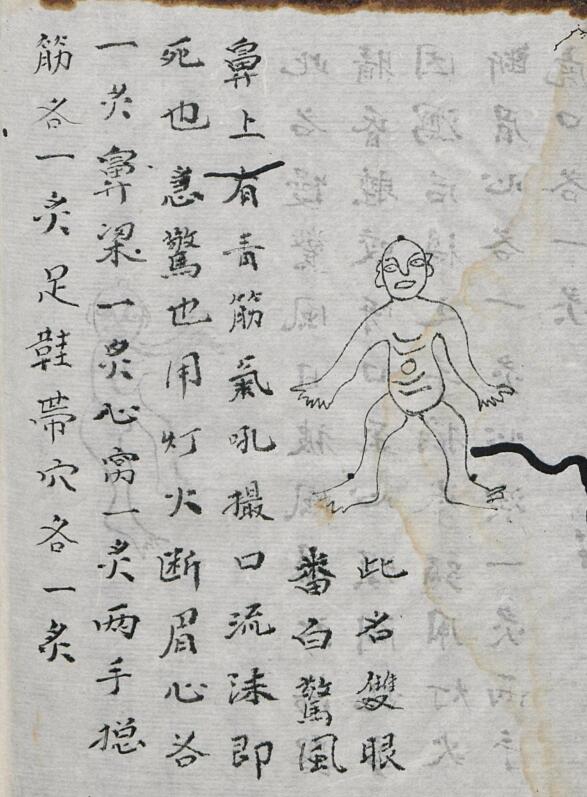 此名雙眼
番白驚風
鼻上有青筋氣吼撮口流沫即
死也急驚也用灯火断眉心各
一炙鼻梁一炙心窩一炙两手総
筋各一炙足鞋帶穴各一炙